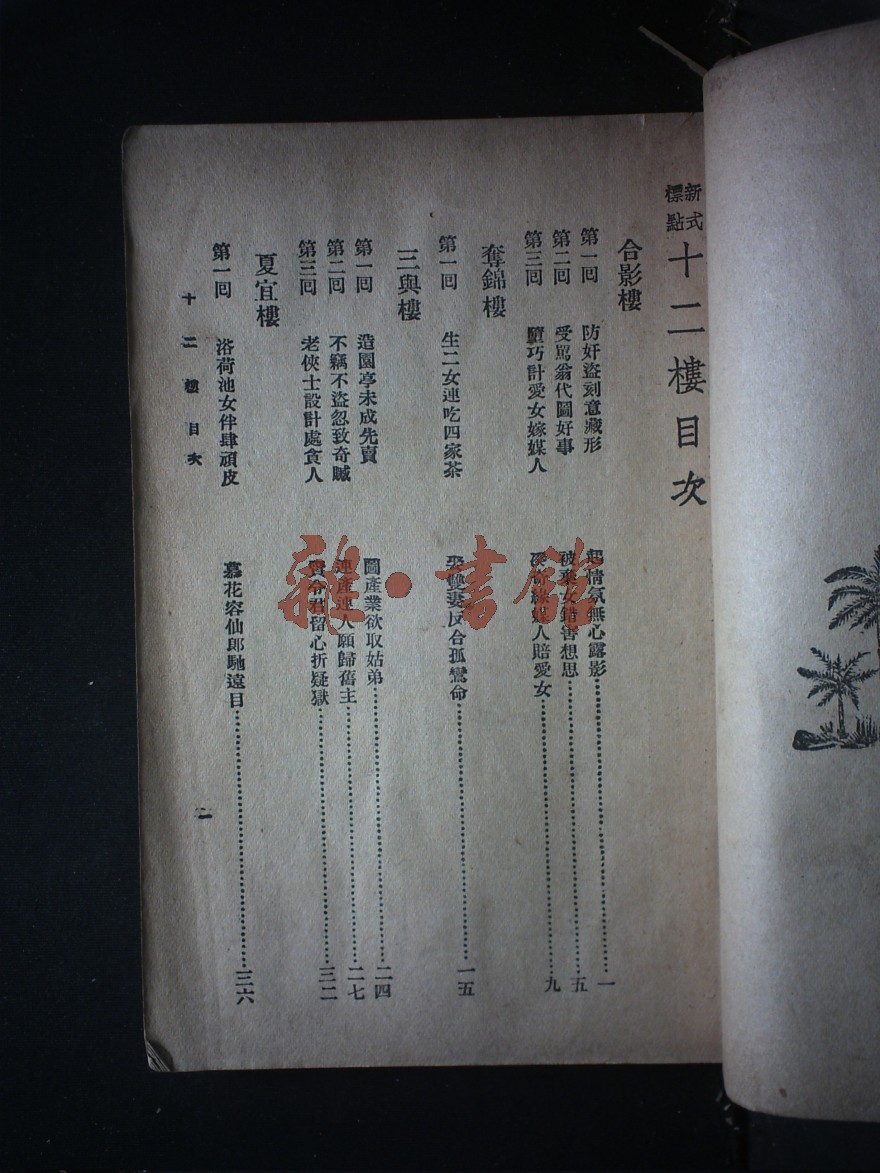 新式標點 十二樓目次
合影樓
第一回 防奸盜刻意藏形 起情氛無心露影 一
第二回 受罵翁代圖好事 被棄女錯害想思 五
第三回 墮巧計愛女嫁媒人 湊奇緣媒人賠愛女 九
奪錦樓
第一回 生二女連吃四家茶 娶雙妻反合孤鸞命 一五
三與樓
第一回 造園亭未成先賣 圖產業欲取姑弟 二四
第二回 不竊不盜忽致奇贓 連產連人願歸舊主 二七
第三回 老俠士設計處貪人 賢令君留心折疑獄 三二
夏宜樓
第一回 浴荷池女伴肆頑皮 慕花容仙郎馳遠目 三六
十二樓目次
一
雜·書館